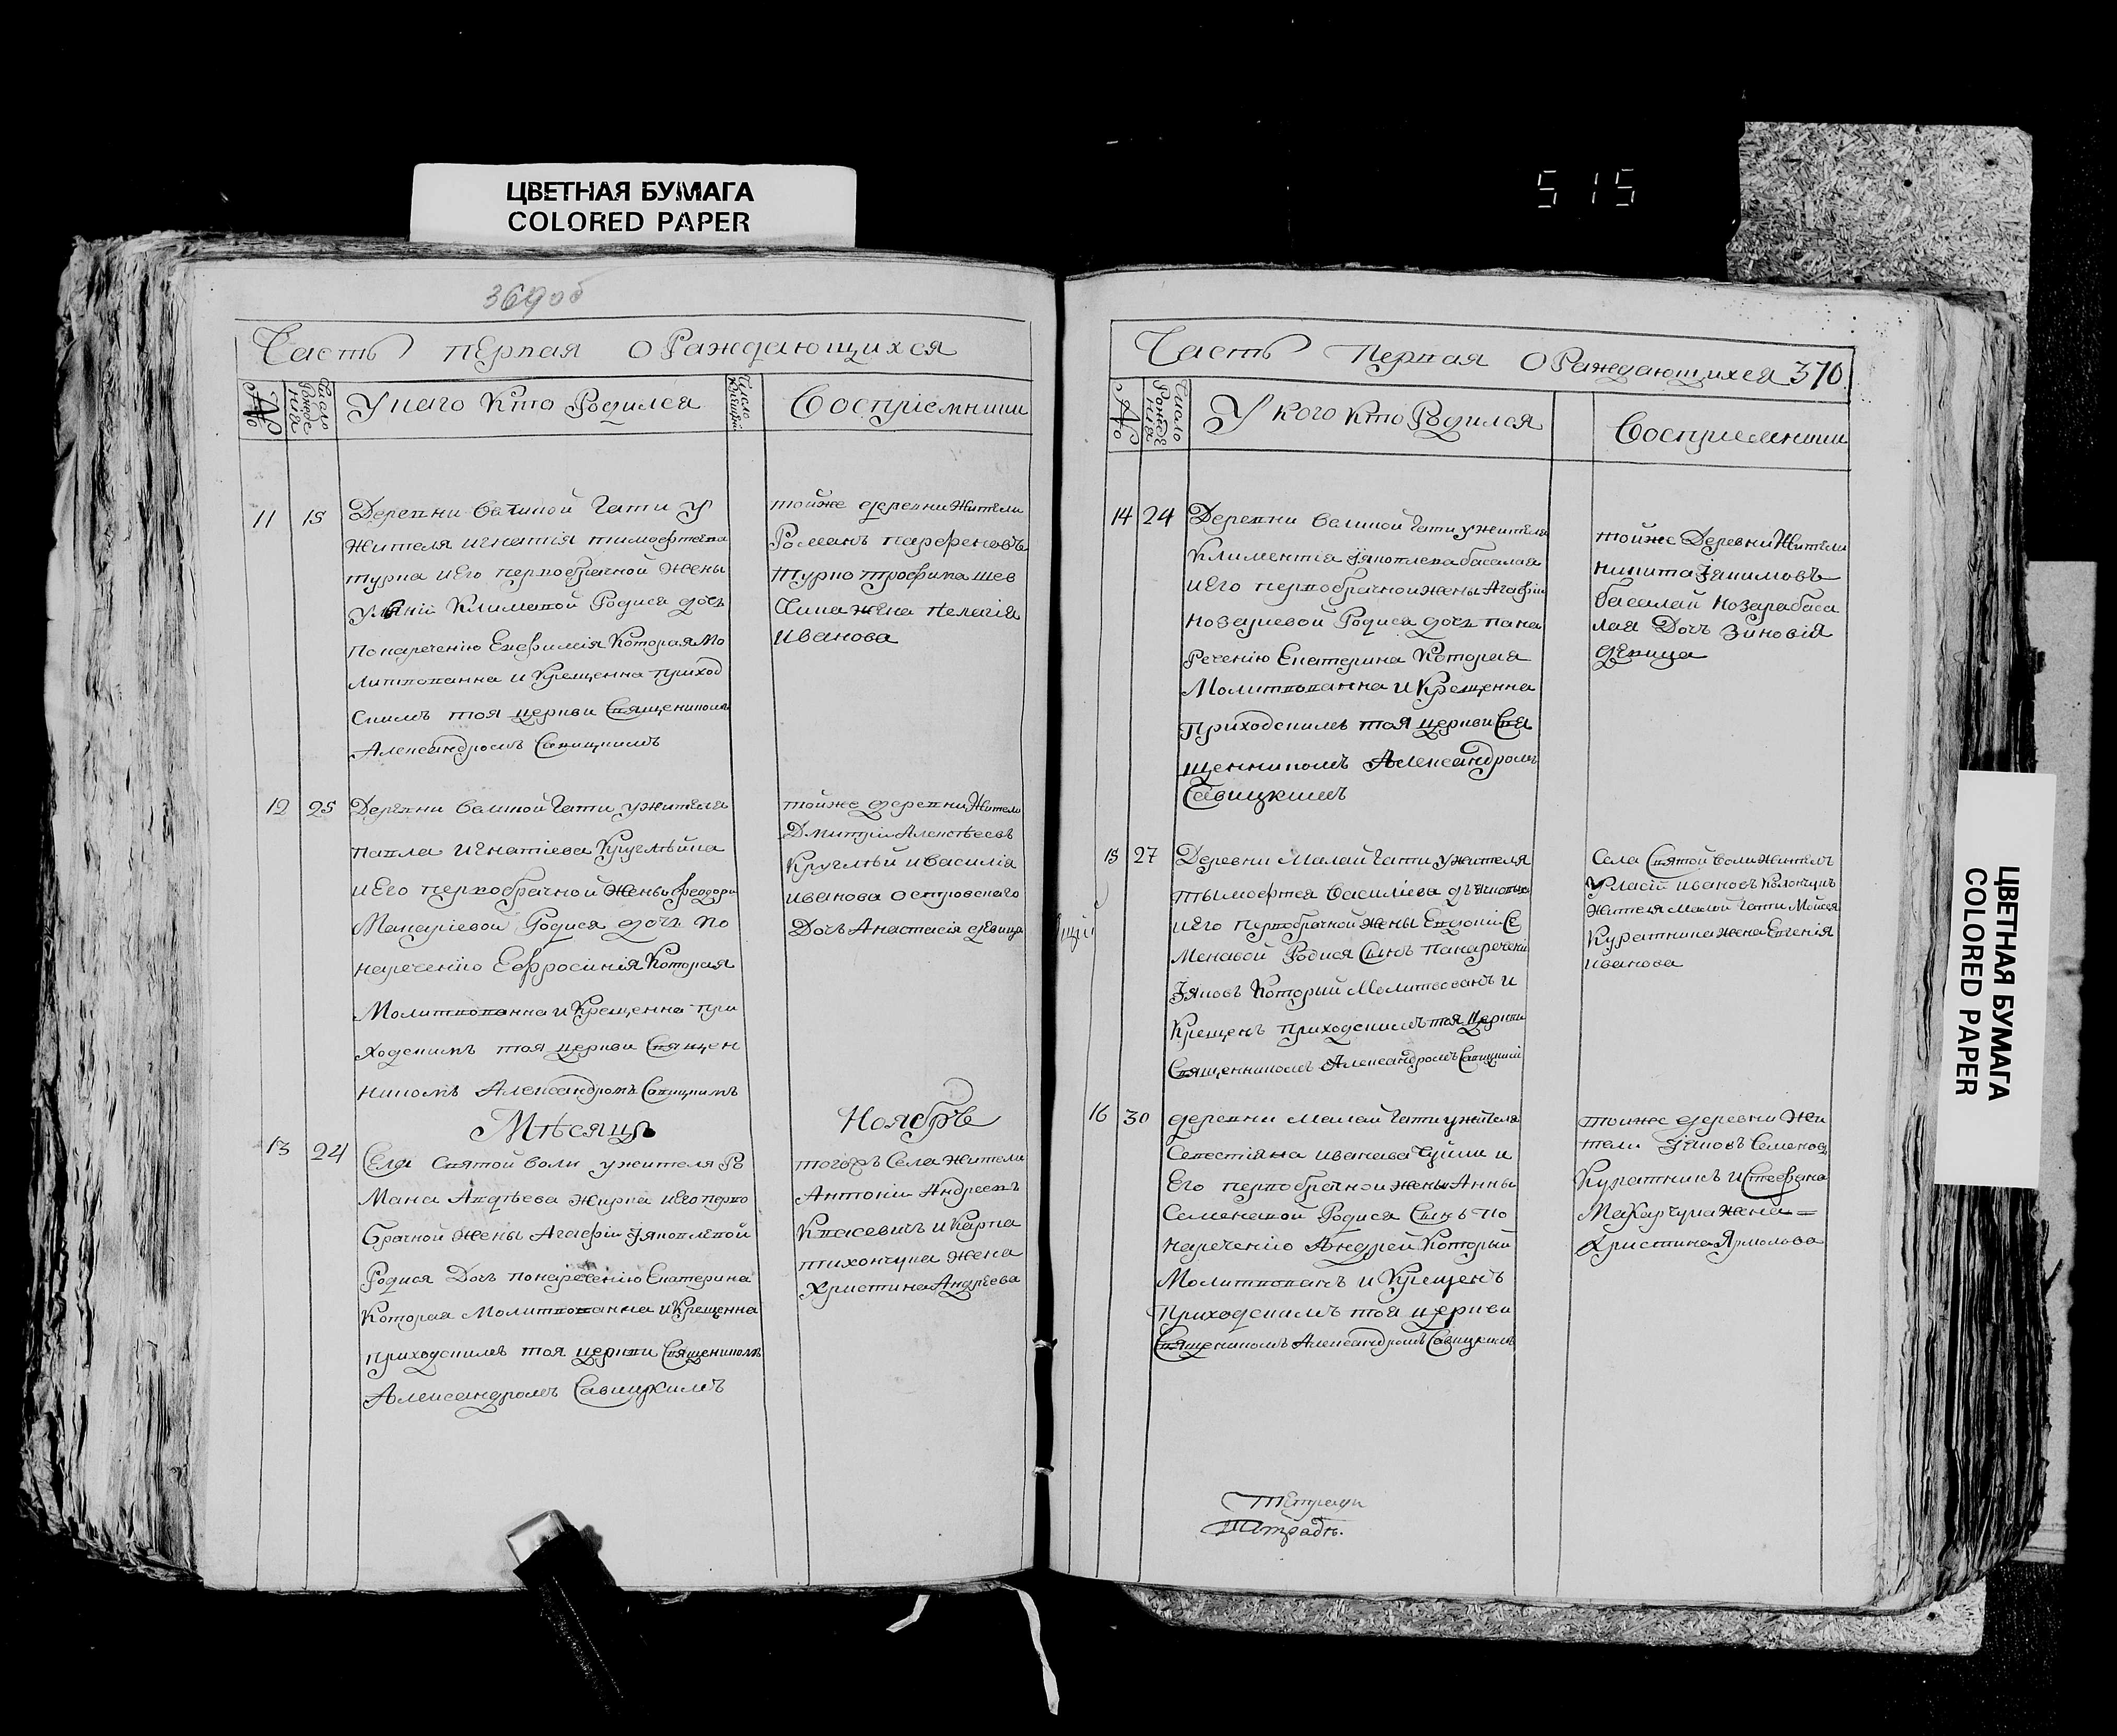 ЦВЕТНАЯ БУМАГА
COLORED PAPER
515
369об
Часть первая о Раждающихся
№
Число Рожденія
У каго Кто Родился
Число Крещенія
Восприемники
11 15
Деревни Великой Гати У
жителя игнатія тимофтеева
турка иЕго первобрачной жены
Климовой Родися дочь
Понаречению Евфимия Которая Мо
литвованна и Крещенна приход
скимъ тоя церкви Священикомъ
Александромъ Савицкимъ
тойже деревни Жители
Романъ парфеновъ
Турко трофима шев
жена пелагія
Иванова
12 25
Деревни Великой Гати ужителя
павла игнатіева Круглѣйка
иЕго первобрачной Жены феодоры
Макаріевой Родися дочь по
наречению Евфросинія Которая
Молитвованна и Крещенна при
ходскимъ тоя церкви Священ
никомъ Александромъ Савицкимъ
тойже деревни Жители
Дмитрій Алексѣевъ
Круглѣй иВасилія
Иванова островского
Дочь Анастасія девица
Мѣсяцъ Ноябрь
13 24
Села Святой Воли ужителя Ро
мана Андрѣева жирка иЕго перво
Брачной Жены Агафіи Іяковлевой
Родися Дочь понаречению Екатерина
Которая Молитвованна и Крещенна
приходскимъ тоя церкви Священикомъ
Александромъ Савицкимъ
тогожъ Села Жители
Антоній Андреевъ
Квасевичъ и Карпа
тихончука жена
Христина Андрѣева
Часть Первая О Раждающихся 370
№
Число Рожденія
У кого Кто Родился
Восприемники
14 24
Деревни Великой Гати ужителя
Климентіа Іяковлева басалая
иЕго первобрачной жены Агафіи
Козариевой Родися дочь пана
речению Екатерина Которая
Молитвованна и Крещенна
Приходскимъ тоя церкви Свя
щенникомъ Александромъ
Савицкимъ
тойже Деревни Жители
никита Іякимовъ
басалай Козара баса
лая Дочь Зиновія
девица
15 27
Деревни Малай Гати ужителя
тымофтея Василіева
иЕго первобрачной жены Евдокіи Се
меновой Родися Сынъ Панаречению
Іяковъ Который Молитвованъ и
Крещенъ приходскимъ тоя Церкви
Священникомъ Александромъ Савицкимъ
Села Святой Воли Житель
Уласій Ивановъ
Жителя Малой Гати Мойсея
Куратника жена Евгенія
Иванова
16 30
деревни Малай Гати ужителя
Севестіяна иванава и
Его первобрачной жены Анны
Семеновой Родися Сынъ по
наречению Андрей Который
Молитвованъ и Крещенъ
Приходскимъ тоя церкви
Священикомъ Александромъ Савицкимъ
тойже деревни Жи
тели Іяковъ Семеновъ
Куратникъ и Стефана
Макарчука жена =
Христина Ярмолова
Тетради
Тетрадь.
ЦВЕТНАЯ БУМАГА
COLORED PAPER